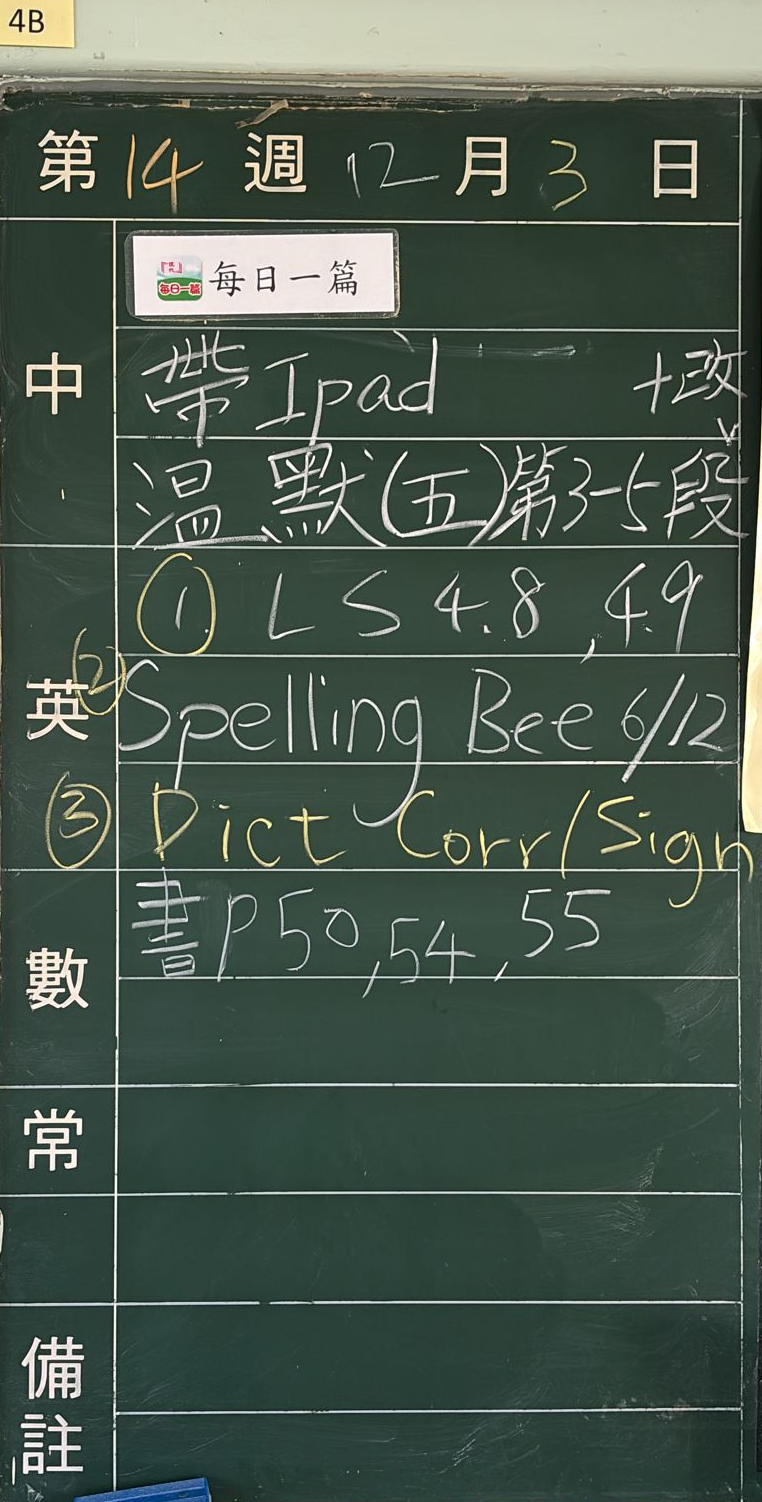 4B
第14週12月3日
中
每日一篇 每日一篇
帶Ipad +改
溫默(五)第3-5段
英
① LS 4.8, 4.9
② Spelling Bee 6/12
③ Dict Corr/Sign
數
書P50,54,55
常
備註